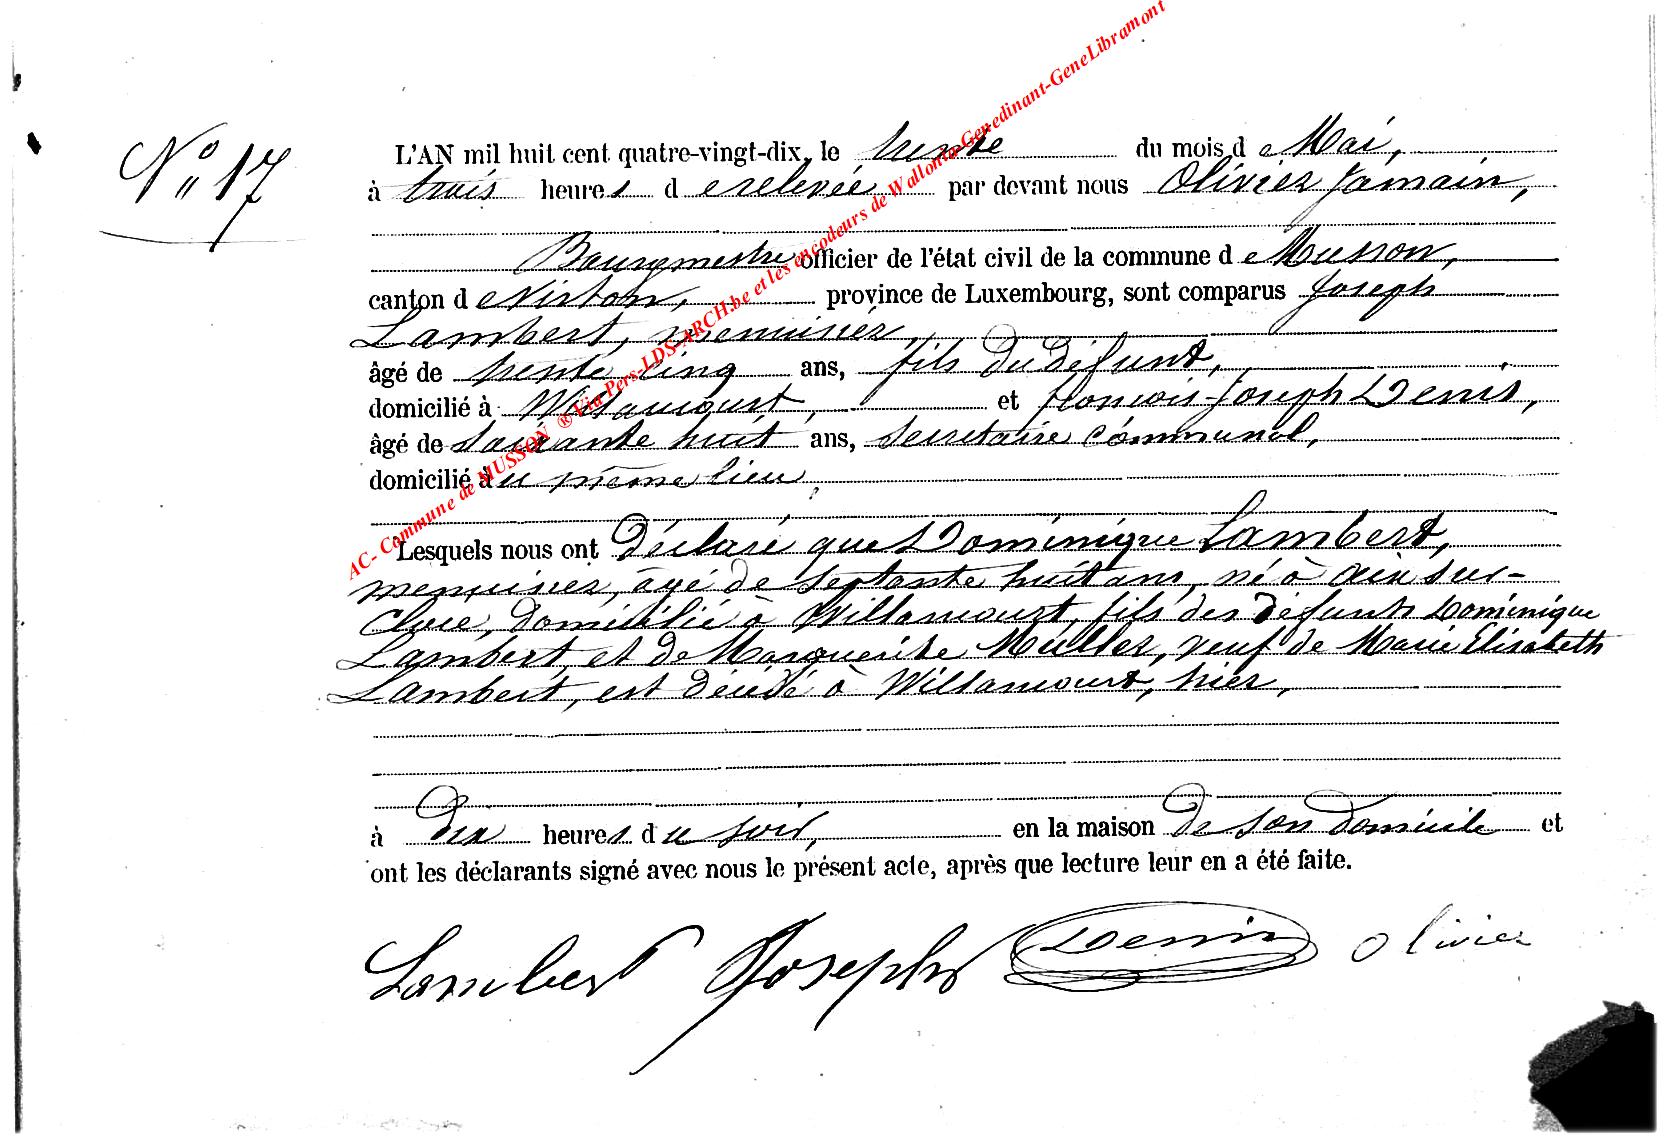 N° 17
L'AN mil huit cent quatre-vingt-dix, le trente du mois de Mai,
à trois heures de relevée par devant nous Olivier Jamain,
Bourgmestre officier de l'état civil de la commune de Musson,
canton de Virton, province de Luxembourg, sont comparus Joseph
Lambert, menuisier,
âgé de trente cinq ans, fils du défunt,
domicilié à Willancourt, et François-Joseph Denis,
âgé de soixante huit ans, secrétaire communal,
domicilié du même lieu,
Lesquels nous ont déclaré que Dominique Lambert,
menuisier, âgé de septante huit ans, né à Aix sur-
Cloie, domicilié à Willancourt, fils des défunts Dominique
Lambert, et de Marguerite Muller, veuf de Marie Elisabeth
Lambert, est décédé à Willancourt, hier,
à dix heures du soir, en la maison de son domicile et
ont les déclarants signé avec nous le présent acte, après que lecture leur en a été faite.
Lambert Joseph Denis Olivier
AC- Commune de MUSSON ® Via Pers-LDS-ARCH.be et les encodeurs de Wallonia-Genedinant-GeneLibramont